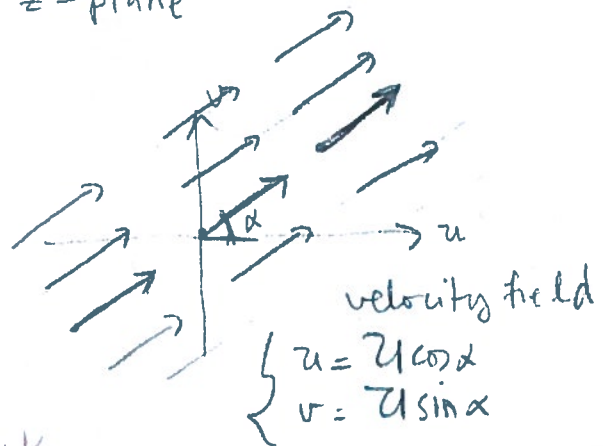 z-plane
v
α
u
velocity field
u = U cos α
v = U sin α